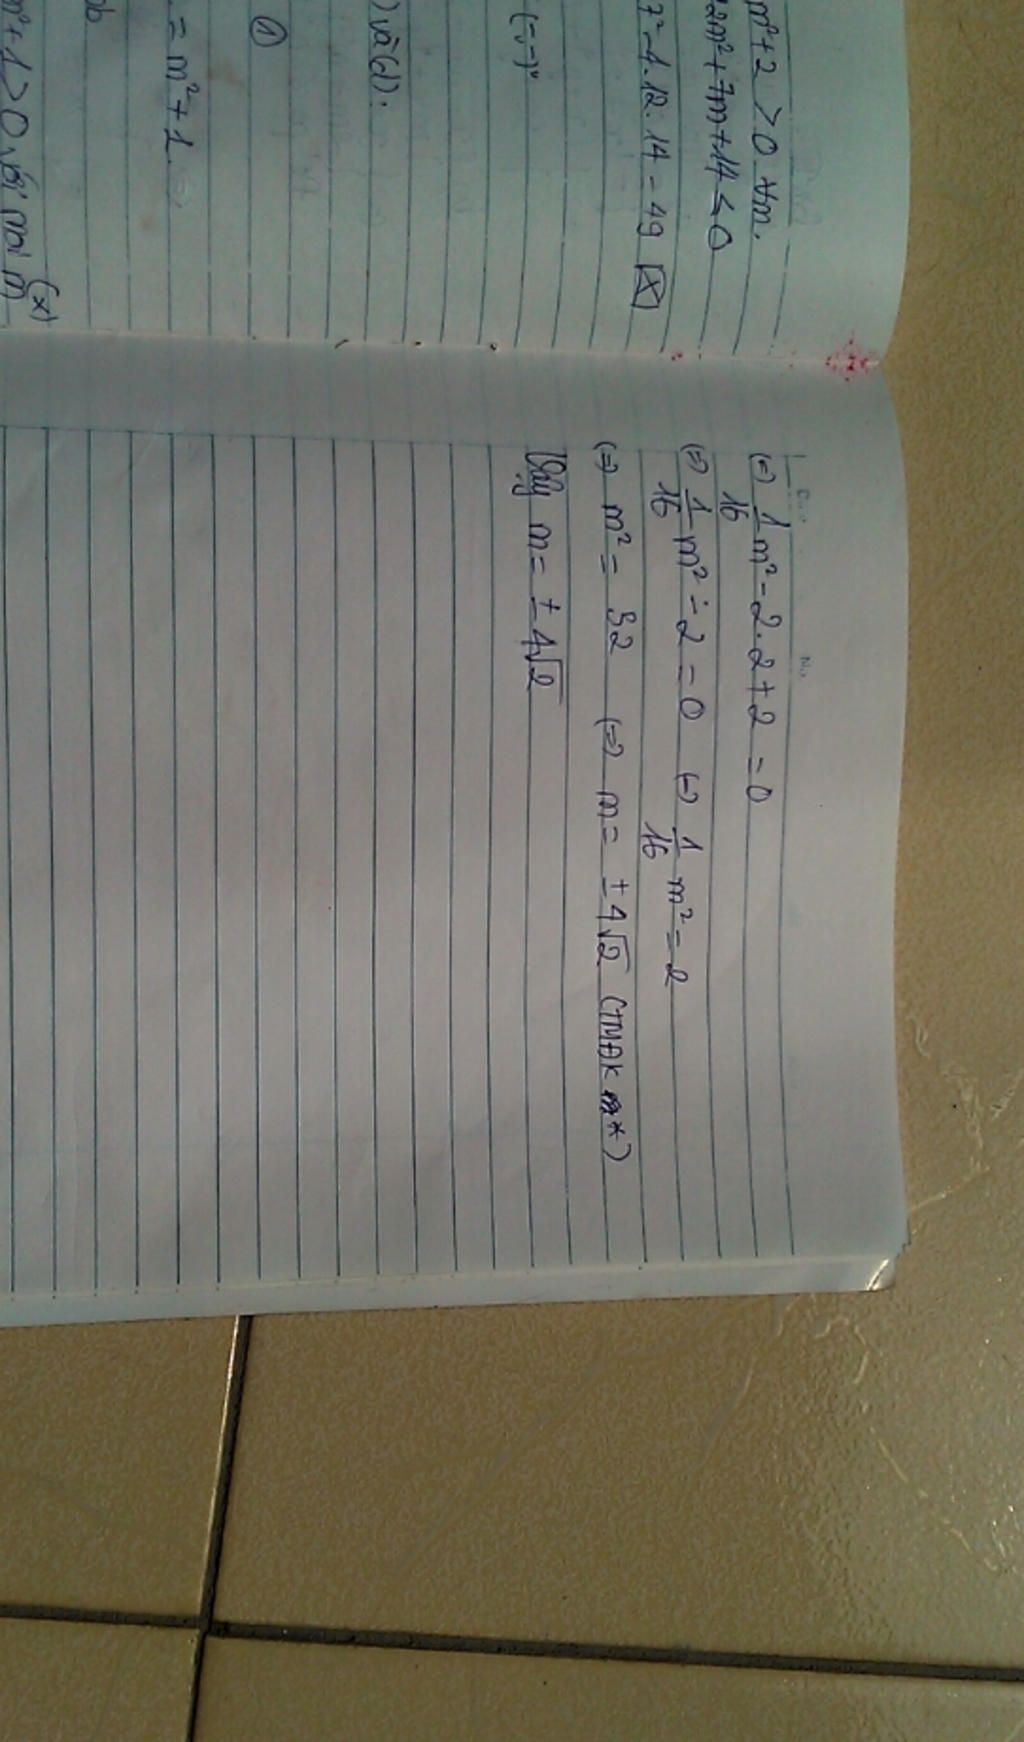 m²+2 >0 ∀m.
2m²+7m+14 ≤ 0
7²-4.12.14 = 49
(-,-)"
) và (d).
①
= m²+1
pb
m²+1 >0 với mọi m
(x)
(=) 1/16 m² - 2.2 + 2 = 0
(=) 1/16 m² - 2 = 0 (=) 1/16 m² = 2
(=) m² = 32 (=) m = ±4√2 (TMĐK m*)
Vậy m = ±4√2